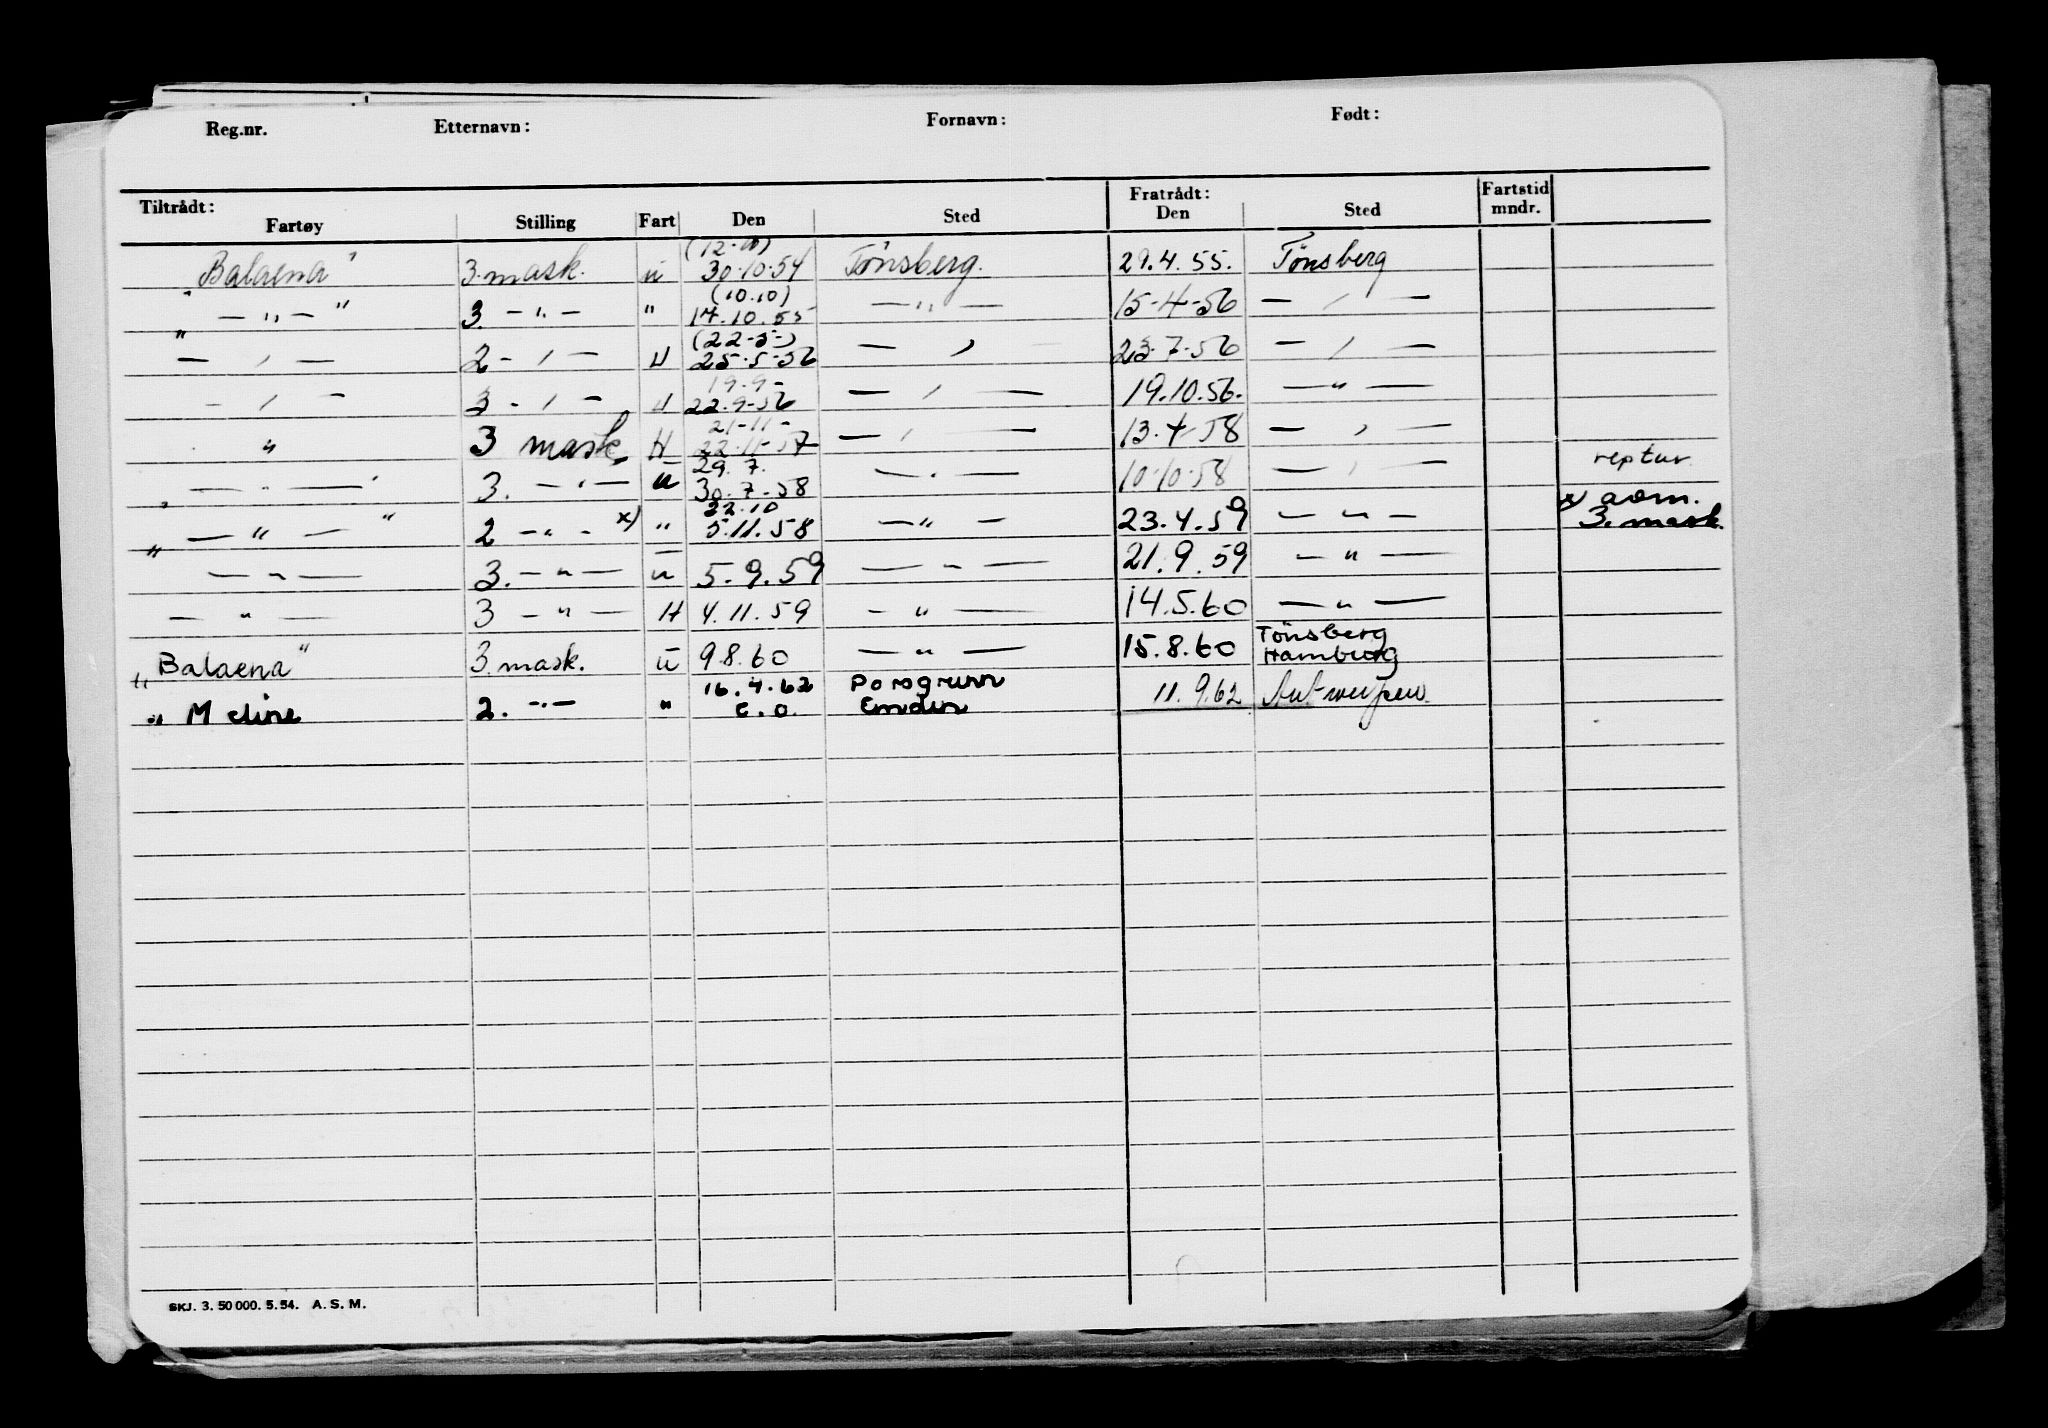 Reg.nr. Etternavn: Fornavn: Født:
Tiltrådt: Fratrådt: Fartstid
Fartøy Stilling Fart Den Sted Den Sted mndr.
(12-10)
"Balaena" 3. mask. u 30.10.54 Tønsberg. 29.4.55. Tønsberg
(10.10)
" — " — " 3. — " — " 17.10.55 — " — 15-4-56 — " —
(22-5-)
— " — 2 - " — U 25-5-56 — " — 23.7-56 — " —
19.9-
— " — 3 - " — U 22.9-56 — " — 19.10.56. — " —
21-11-
" 3 mask H 22.11-57 — " — 13.4-58 — " —
29.7. reptur
" — " — " 3. — " — u 30.7-58 — " — 10-10-58 — " —
22.10 x) aom.
" — " — " 2 — " - x) " 5.11.58 — " — 23.4.59 — " — 3. mask.
— " — 3. — " — u 5.9.59 — " — 21.9.59 — " —
— " — 3 — " — H 4.11.59 — " — 14.5.60 — " —
Tønsberg
"Balaena" 3. mask. u 9.8.60 — " — 15.8.60 Hamburg
16.4.62 Porsgrunn
" M cline 2. — " — " e.o. Emden 11.9.62 Antwerpen.
SKJ. 3. 50 000. 5. 54. A. S. M.